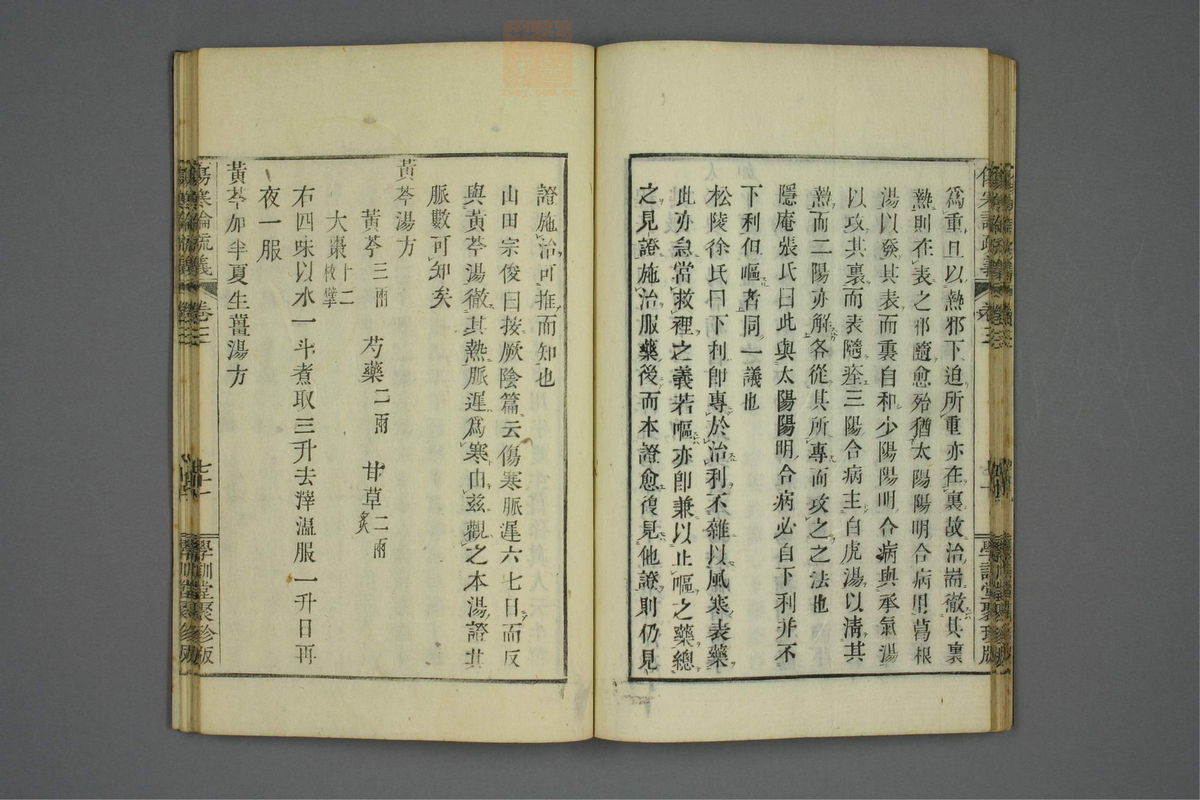 爲重且以熱邪下迫所重亦在裏故治耑徹其裏
熱則在表之邪隨愈殆猶太陽陽明合病用葛根
湯以發其表而裏自和少陽陽明合病與承氣湯
以攻其裏而表隨痊三陽合病主白虎湯以清其
熱而二陽亦解各從其所專而攻之之法也
隱庵張氏曰此與太陽陽明合病必自下利并不
下利但嘔者同一議也
松陵徐氏曰下利卽專於治利不雜以風寒表藥
此亦急當救裡之義若嘔亦卽兼以止嘔之藥總
之見證施治服藥後而本證愈復見他證則仍見
證施治可推而知也
山田宗俊曰按厥陰篇云傷寒脈遲六七日而反
與黃芩湯徹其熱脈遲爲寒由茲觀之本湯證其
脈數可知矣
黃芩湯方
黃芩三兩 芍藥二兩 甘草二兩炙
大棗十二枚擘
右四味以水一斗煮取三升去滓溫服一升日再
夜一服
黃芩加半夏生薑湯方
傷寒論疏義 卷三 學訓堂聚珍版